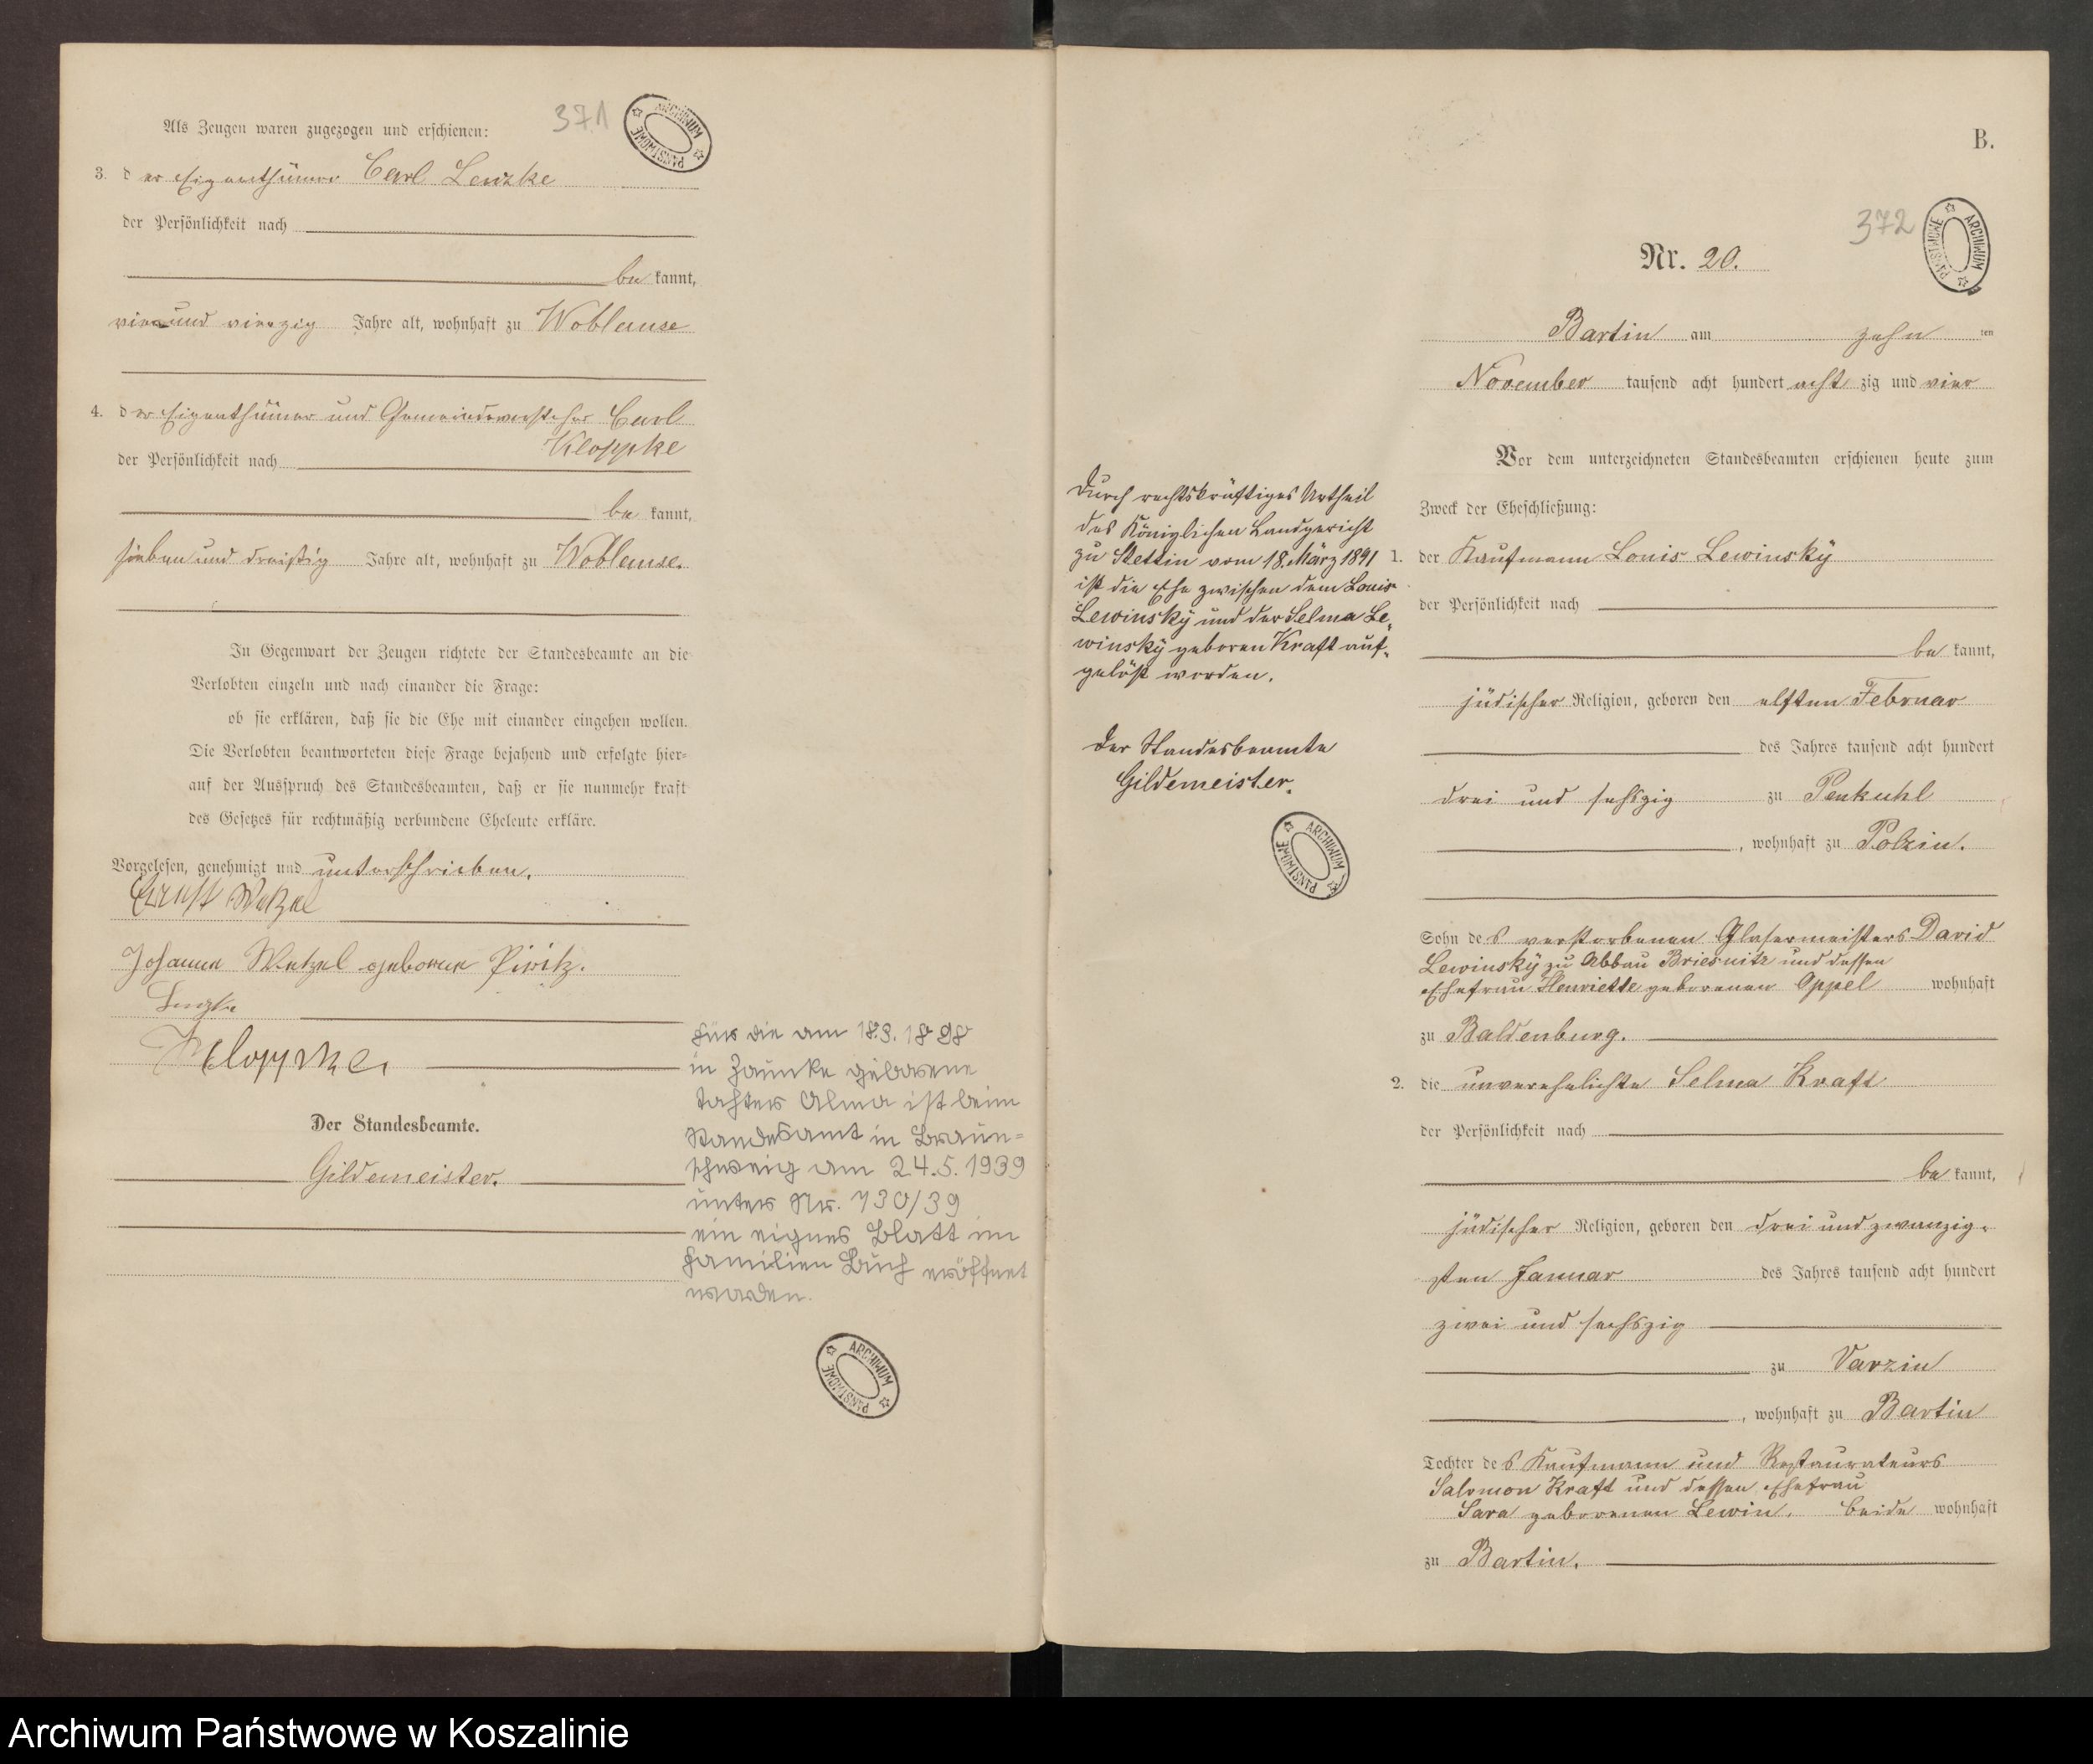 371
Als Zeugen waren zugezogen und erschienen:
3. der Eigenthümer Carl Lenzke
der Persönlichkeit nach
be kannt,
vierund vierzig Jahre alt, wohnhaft zu Woblanse
4. der Eigenthümer und Gemeindevorsteher Carl
Kloppke
der Persönlichkeit nach
be kannt,
sieben und dreißig Jahre alt, wohnhaft zu Woblanse.
In Gegenwart der Zeugen richtete der Standesbeamte an die
Verlobten einzeln und nach einander die Frage:
ob sie erklären, daß sie die Ehe mit einander eingehen wollen.
Die Verlobten beantworteten diese Frage bejahend und erfolgte hier-
auf der Ausspruch des Standesbeamten, daß er sie nunmehr kraft
des Gesetzes für rechtmäßig verbundene Eheleute erkläre.
Vorgelesen, genehmigt und unterschrieben.
Ernst Wetzel
Johanne Wetzel geborene Piritz.
Lenzke
Kloppke
Der Standesbeamte.
Gildemeister.
Für die am 18.3.1898
in Zaunke geborene
Tochter Alma ist beim
Standesamt in Braun=
schweig am 24.5.1939
unter Nr. 730/39
ein eignes Blatt im
Familien Buch eröffnet
worden.
ARCHIWUM PAŃSTWOWE
ARCHIWUM PAŃSTWOWE
B.
372
ARCHIWUM PAŃSTWOWE
Nr. 20.
Bartin am zehn ten
November tausend acht hundert acht zig und vier
Vor dem unterzeichneten Standesbeamten erschienen heute zum
Zweck der Eheschließung:
1. der Kaufmann Louis Lewinsky
der Persönlichkeit nach
be kannt,
jüdischer Religion, geboren den elften Februar
des Jahres tausend acht hundert
drei und sechszig zu Penkuhl
, wohnhaft zu Polzin.
Sohn des verstorbenen Glasermeisters David
Lewinsky zu Abbau Briesnitz und dessen
Ehefrau Henriette geborenen Appel wohnhaft
zu Baldenburg.
2. die unverehelichte Selma Kraft
der Persönlichkeit nach
be kannt,
jüdischer Religion, geboren den drei und zwanzig=
sten Januar des Jahres tausend acht hundert
zwei und sechszig
zu Varzin
, wohnhaft zu Bartin
Tochter des Kaufmann und Restaurateurs
Salomon Kraft und dessen Ehefrau
Sara geborenen Lewin. beide wohnhaft
zu Bartin.
Durch rechtskräftiges Urtheil
des Königlichen Landgericht
zu Stettin vom 18. März 1891
ist die Ehe zwischen dem Louis
Lewinsky und der Selma Le=
winsky geboren Kraft auf=
gelöst worden.
Der Standesbeamte
Gildemeister.
ARCHIWUM PAŃSTWOWE
Archiwum Państwowe w Koszalinie